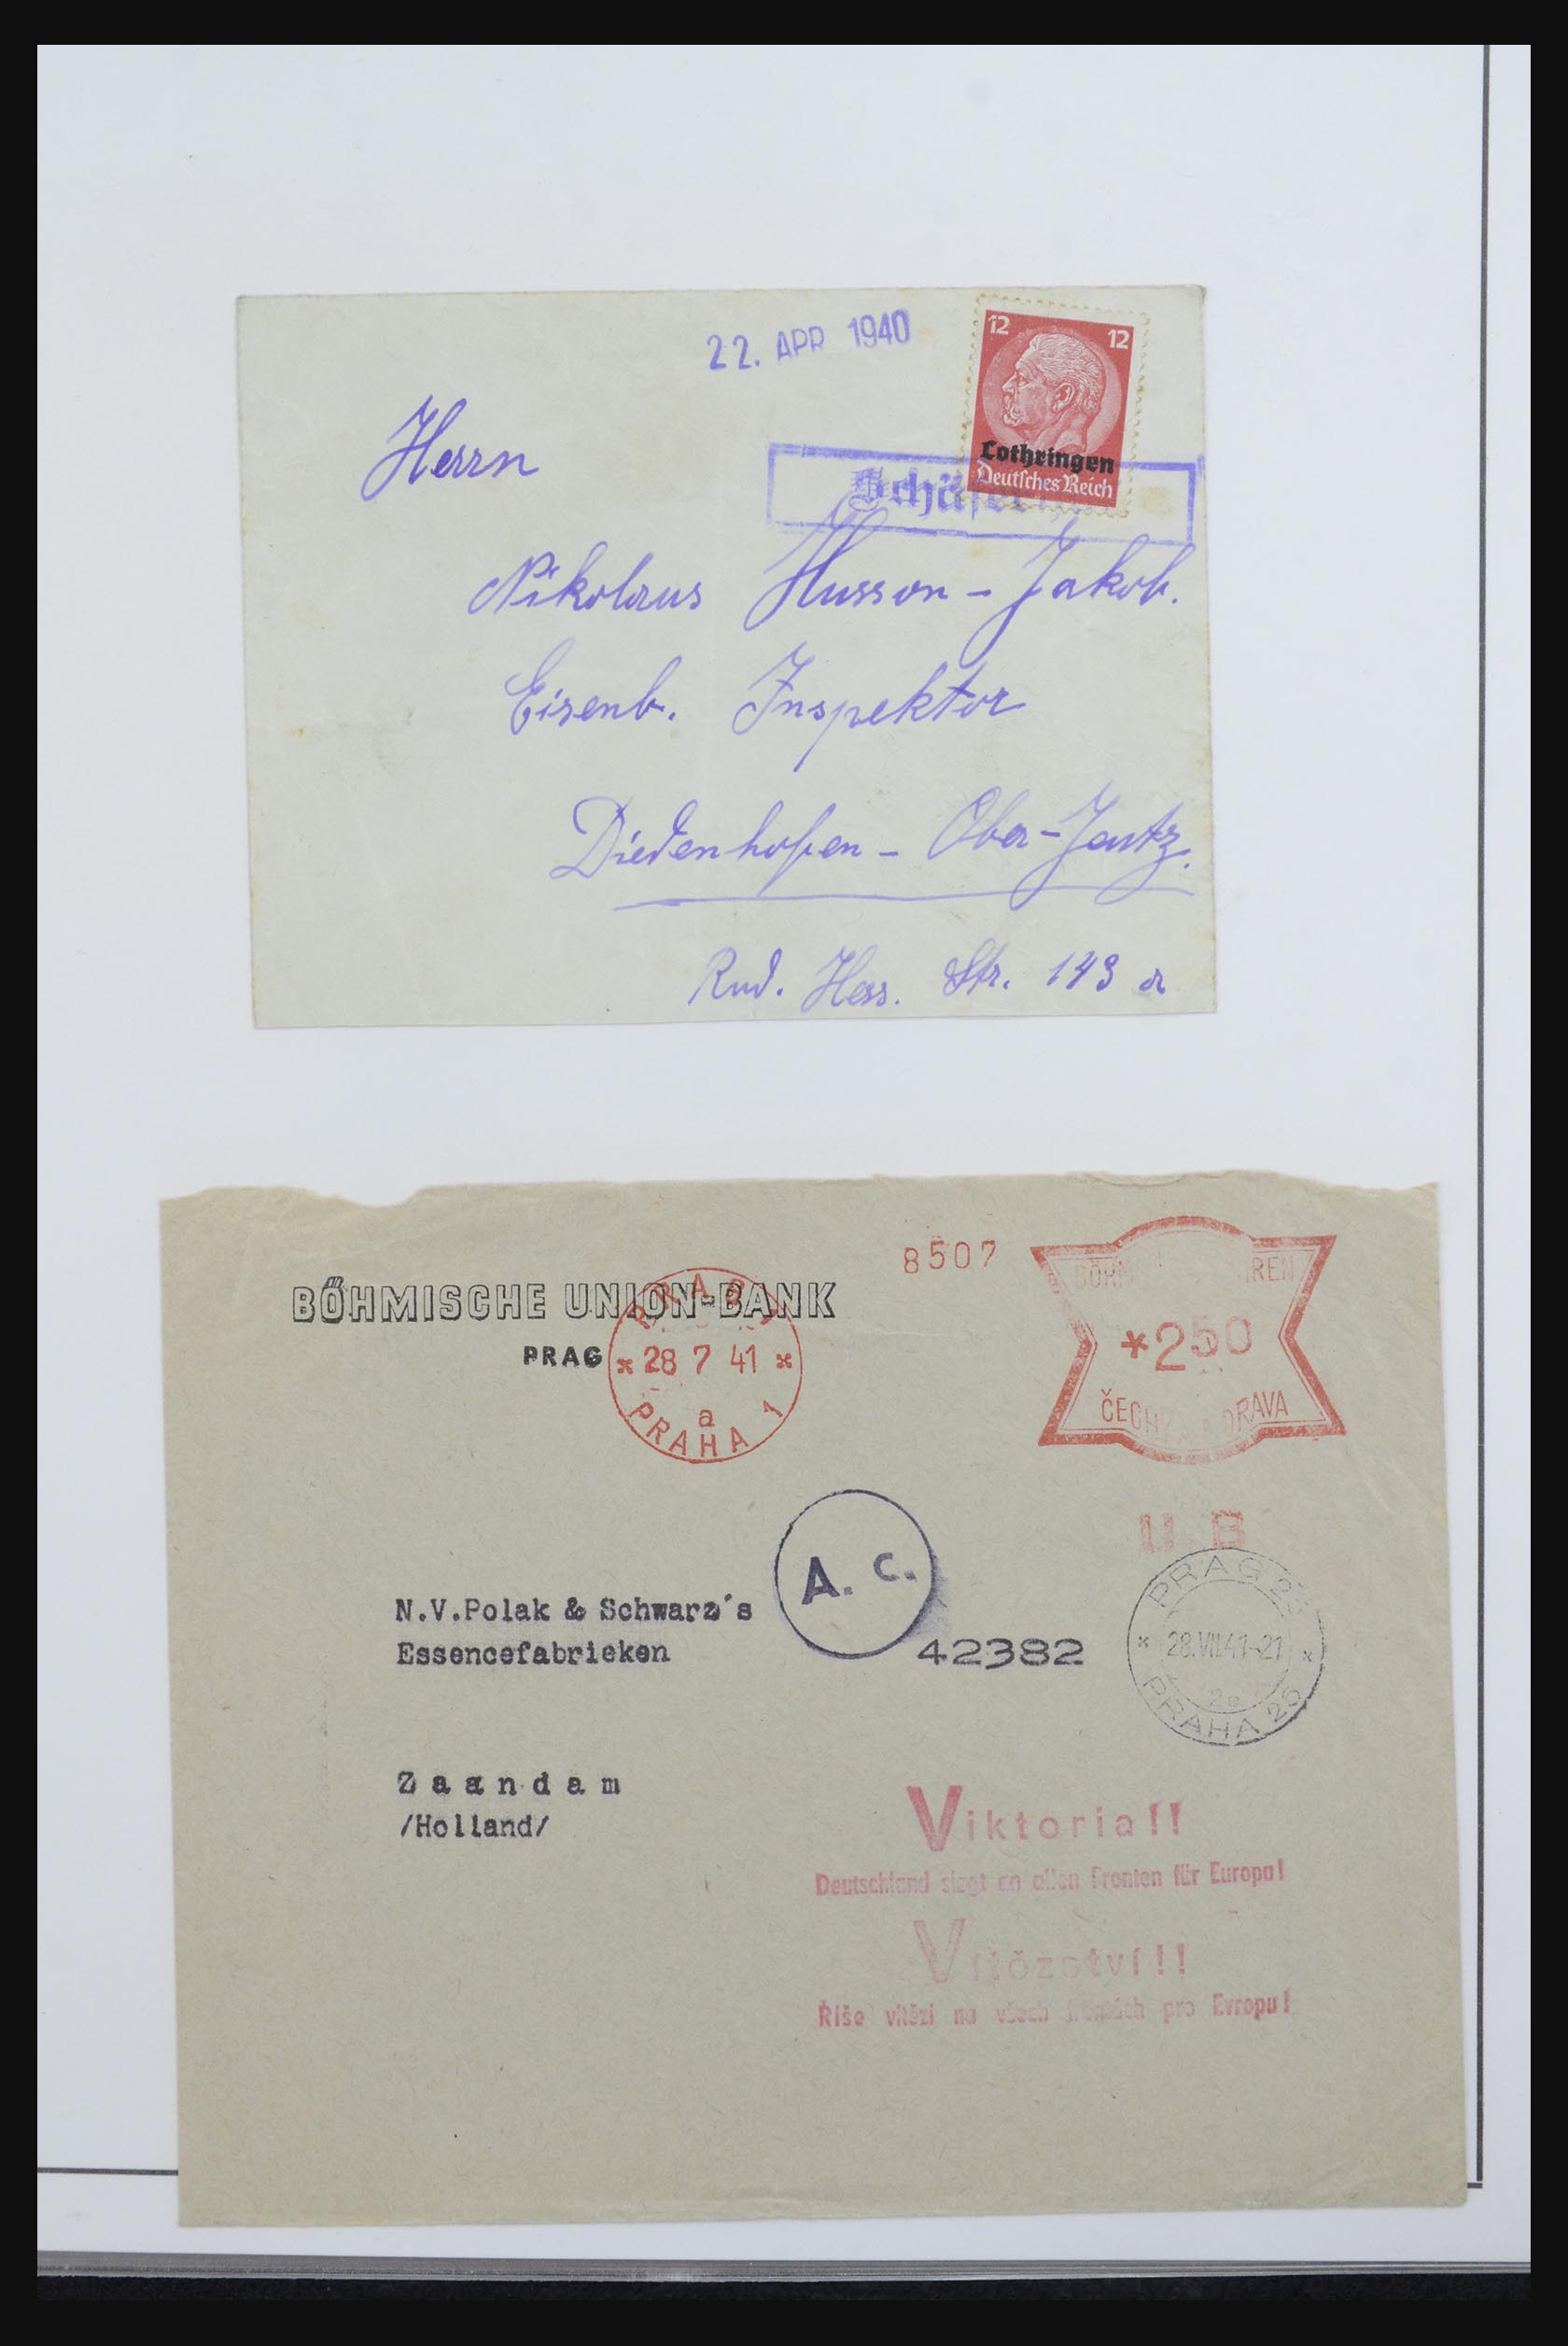 22. APR 1940
12 12
Lothringen
Deutsches Reich
Herrn
Nikolaus Husson - Jakob.
Eisenb. Inspektor
Diedenhofen - Ober-Jeutz.
Rud. Hess. Str. 143 a
8507
BÖHMISCHE UNION-BANK
PRAG
PRAG 1
* 28 7 41 *
a
PRAHA 1
*250
U B
A. c.
N.V.Polak & Schwarz's
Essencefabrieken
42382
PRAG 25
* 28.VII.41-21 *
PRAHA 25
Zaandam
/Holland/
Viktoria!!
Deutschland siegt an allen Fronten für Europa!
Vítězství!!
Říše vítězí na všech frontách pro Evropu!